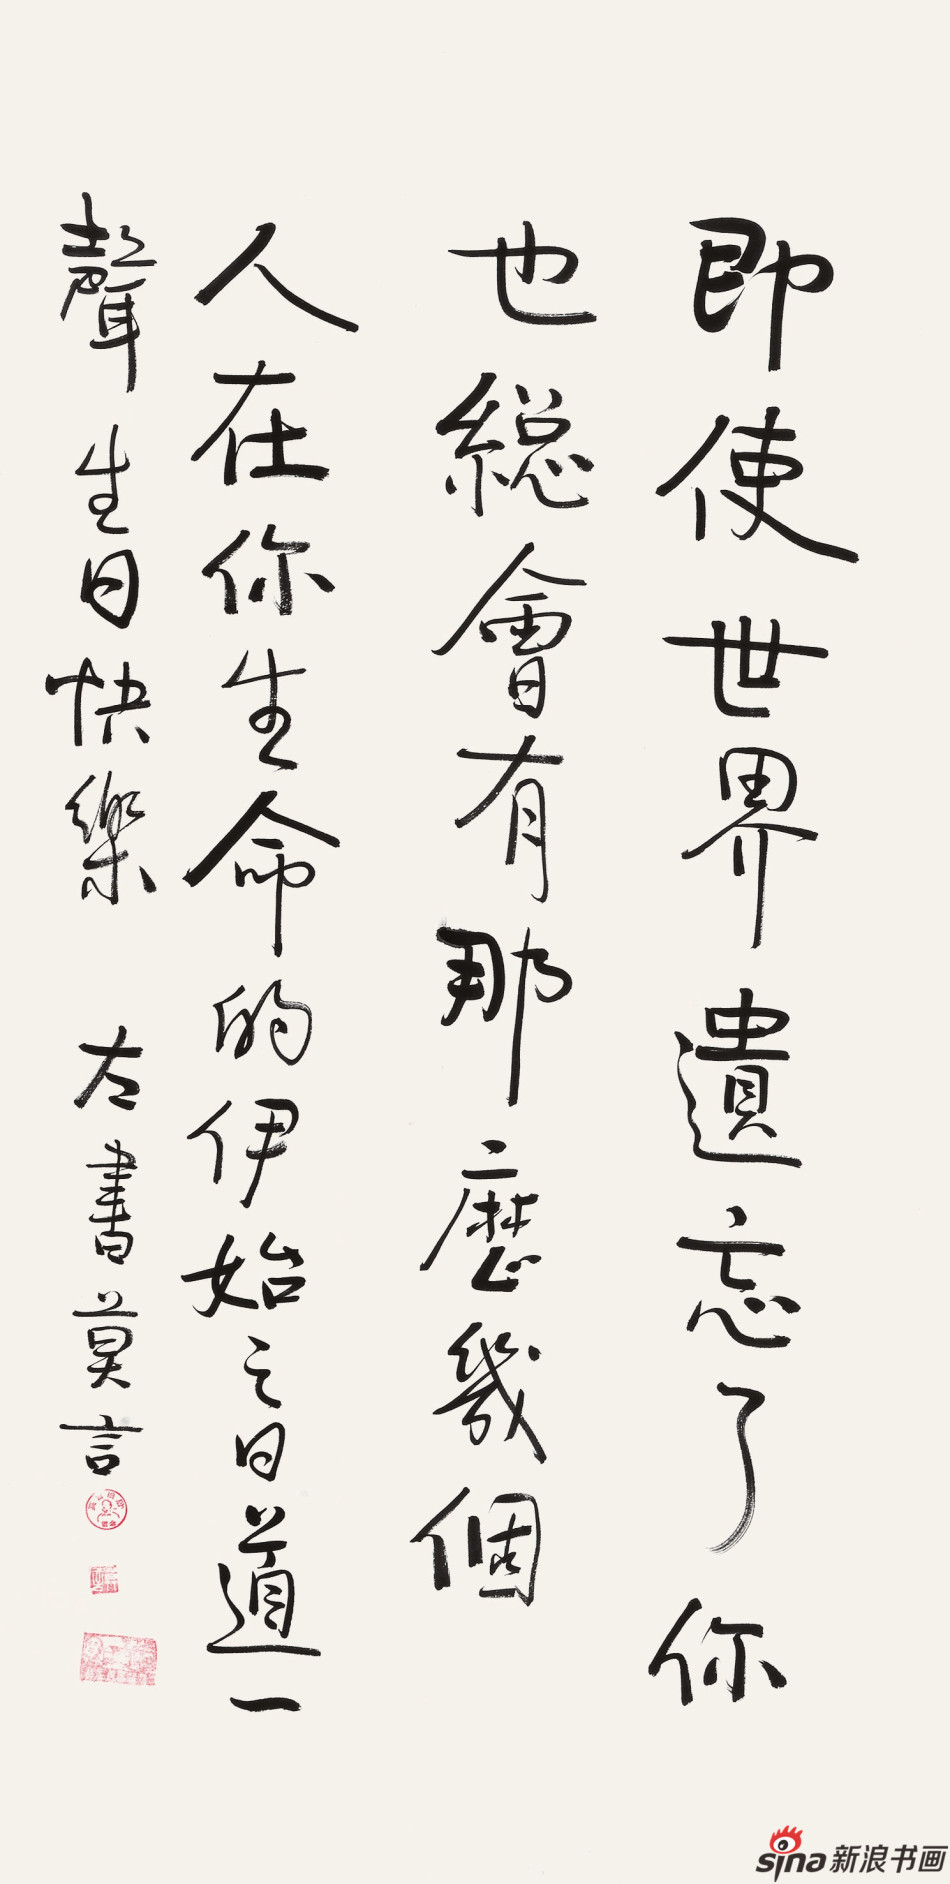 即使世界遺忘了你
也総會有那麽幾個
人在你生命的伊始之日道一
聲生日快樂 左書莫言
sina新浪书画